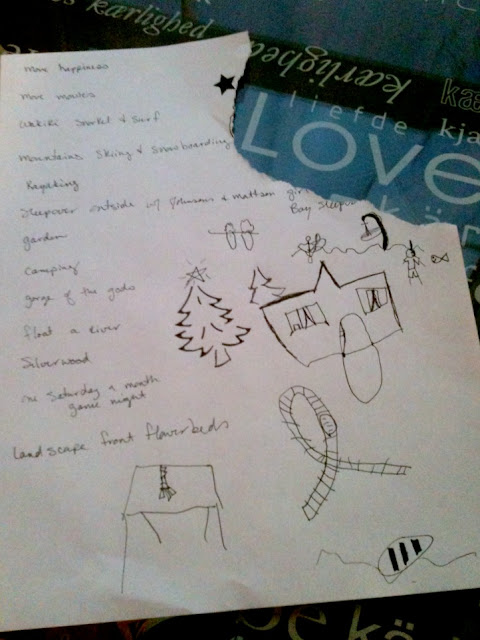 es kærlighed
kærlighed
kærlighed
kæ
liefde kjæ
Love
kär
more happiness
more movies
snorkel & surf
mountains skiing & snowboarding
Kayaking
Sleepover outside w/ & girl
Bay Sleepover
garden
camping
gorge of the gods
float a river
Silverwood
one Saturday a month
game night
landscape front flowerbeds
be kä